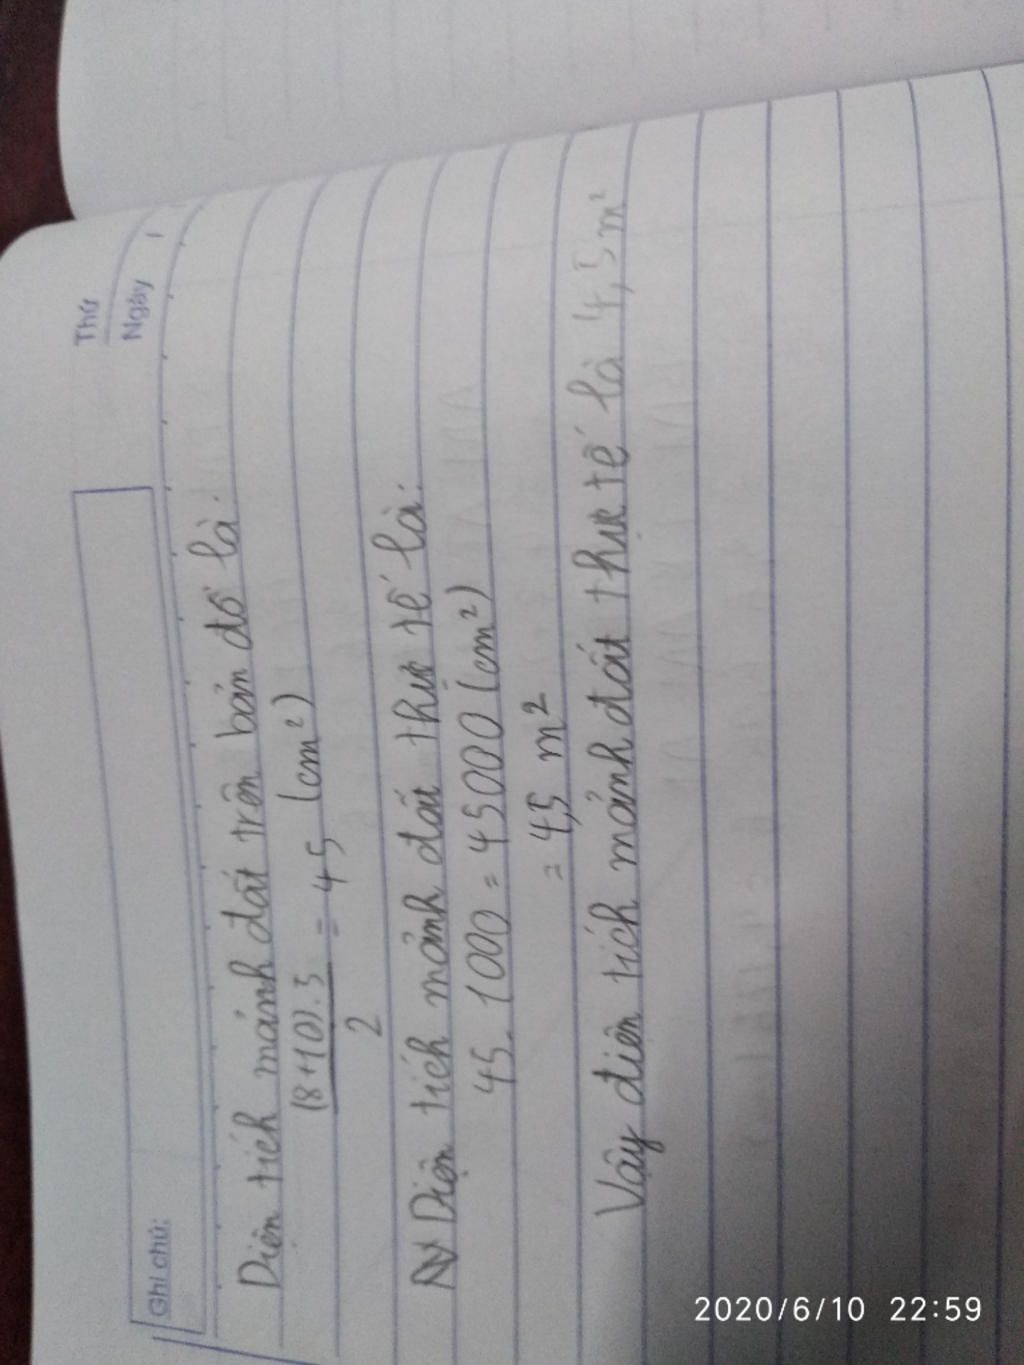 Thứ
Ngày
Ghi chú:
Diện tích mảnh đất trên bản đồ là:
(8+10).5
2
= 45 (cm²)
Diện tích mảnh đất thực tế là:
45.1000 = 45000 (cm²)
= 4,5 m²
Vậy diện tích mảnh đất thực tế là 4,5m²
2020/6/10 22:59